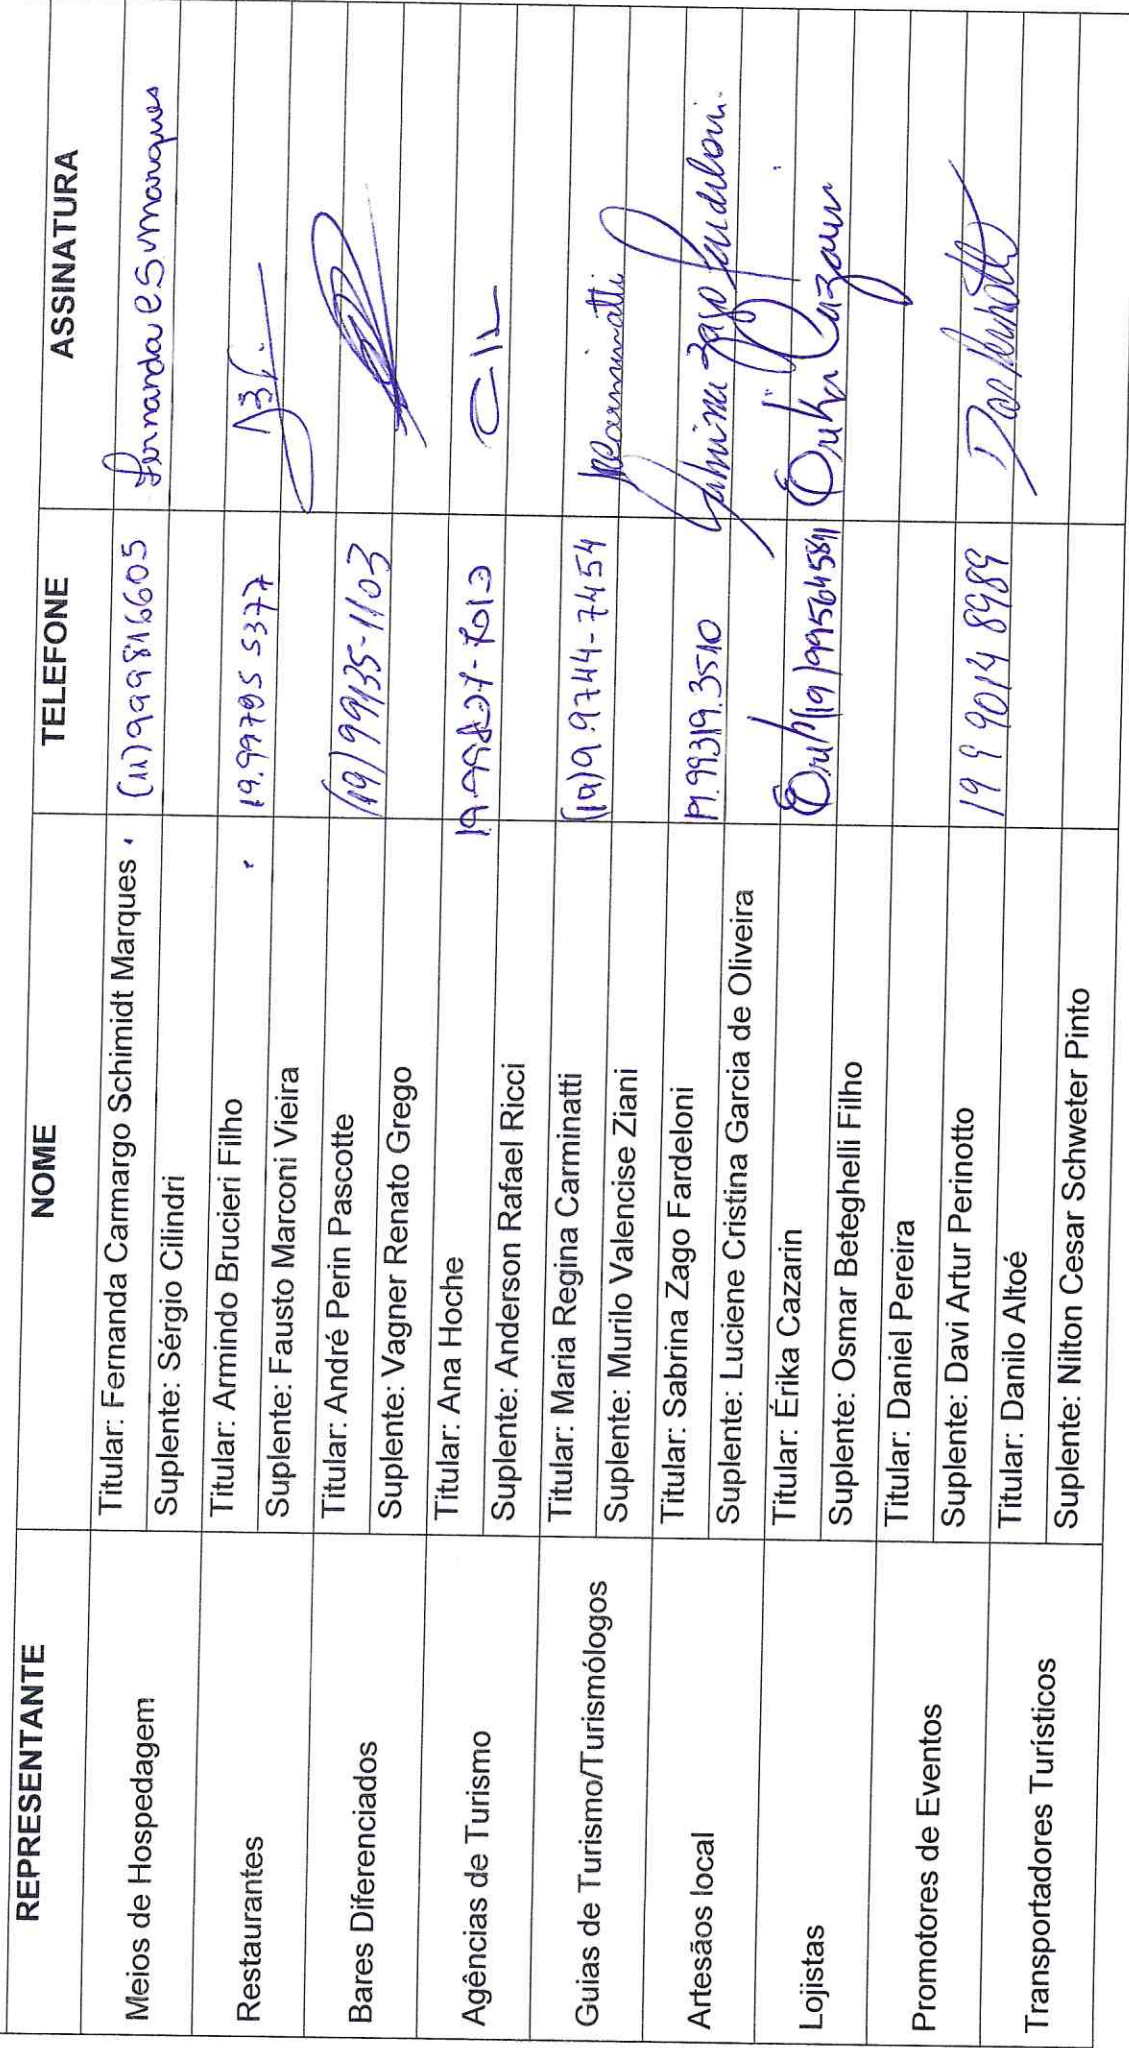 REPRESENTANTE NOME TELEFONE ASSINATURA
Meios de Hospedagem
Titular: Fernanda Carmargo Schimidt Marques (11) 999816605 Fernanda CS Marques
Suplente: Sérgio Cilindri
Restaurantes
Titular: Armindo Brucieri Filho 19.99795 5377
Suplente: Fausto Marconi Vieira
Bares Diferenciados
Titular: André Perin Pascotte (19) 99135-1103
Suplente: Vagner Renato Grego
Agências de Turismo
Titular: Ana Hoche
Suplente: Anderson Rafael Ricci
Guias de Turismo/Turismólogos
Titular: Maria Regina Carminatti (19) 9.9744-7454 Carminatti
Suplente: Murilo Valencise Ziani
Artesãos local
Titular: Sabrina Zago Fardeloni 19.99319.3510 Sabrina Zago Fardeloni.
Suplente: Luciene Cristina Garcia de Oliveira
Lojistas
Titular: Érika Cazarin (19) 995645811 Érika Cazarin
Suplente: Osmar Beteghelli Filho
Promotores de Eventos
Titular: Daniel Pereira
Suplente: Davi Artur Perinotto 19 9 9014 8989 Davi Perinotto
Transportadores Turísticos
Titular: Danilo Altoé
Suplente: Nilton Cesar Schweter Pinto